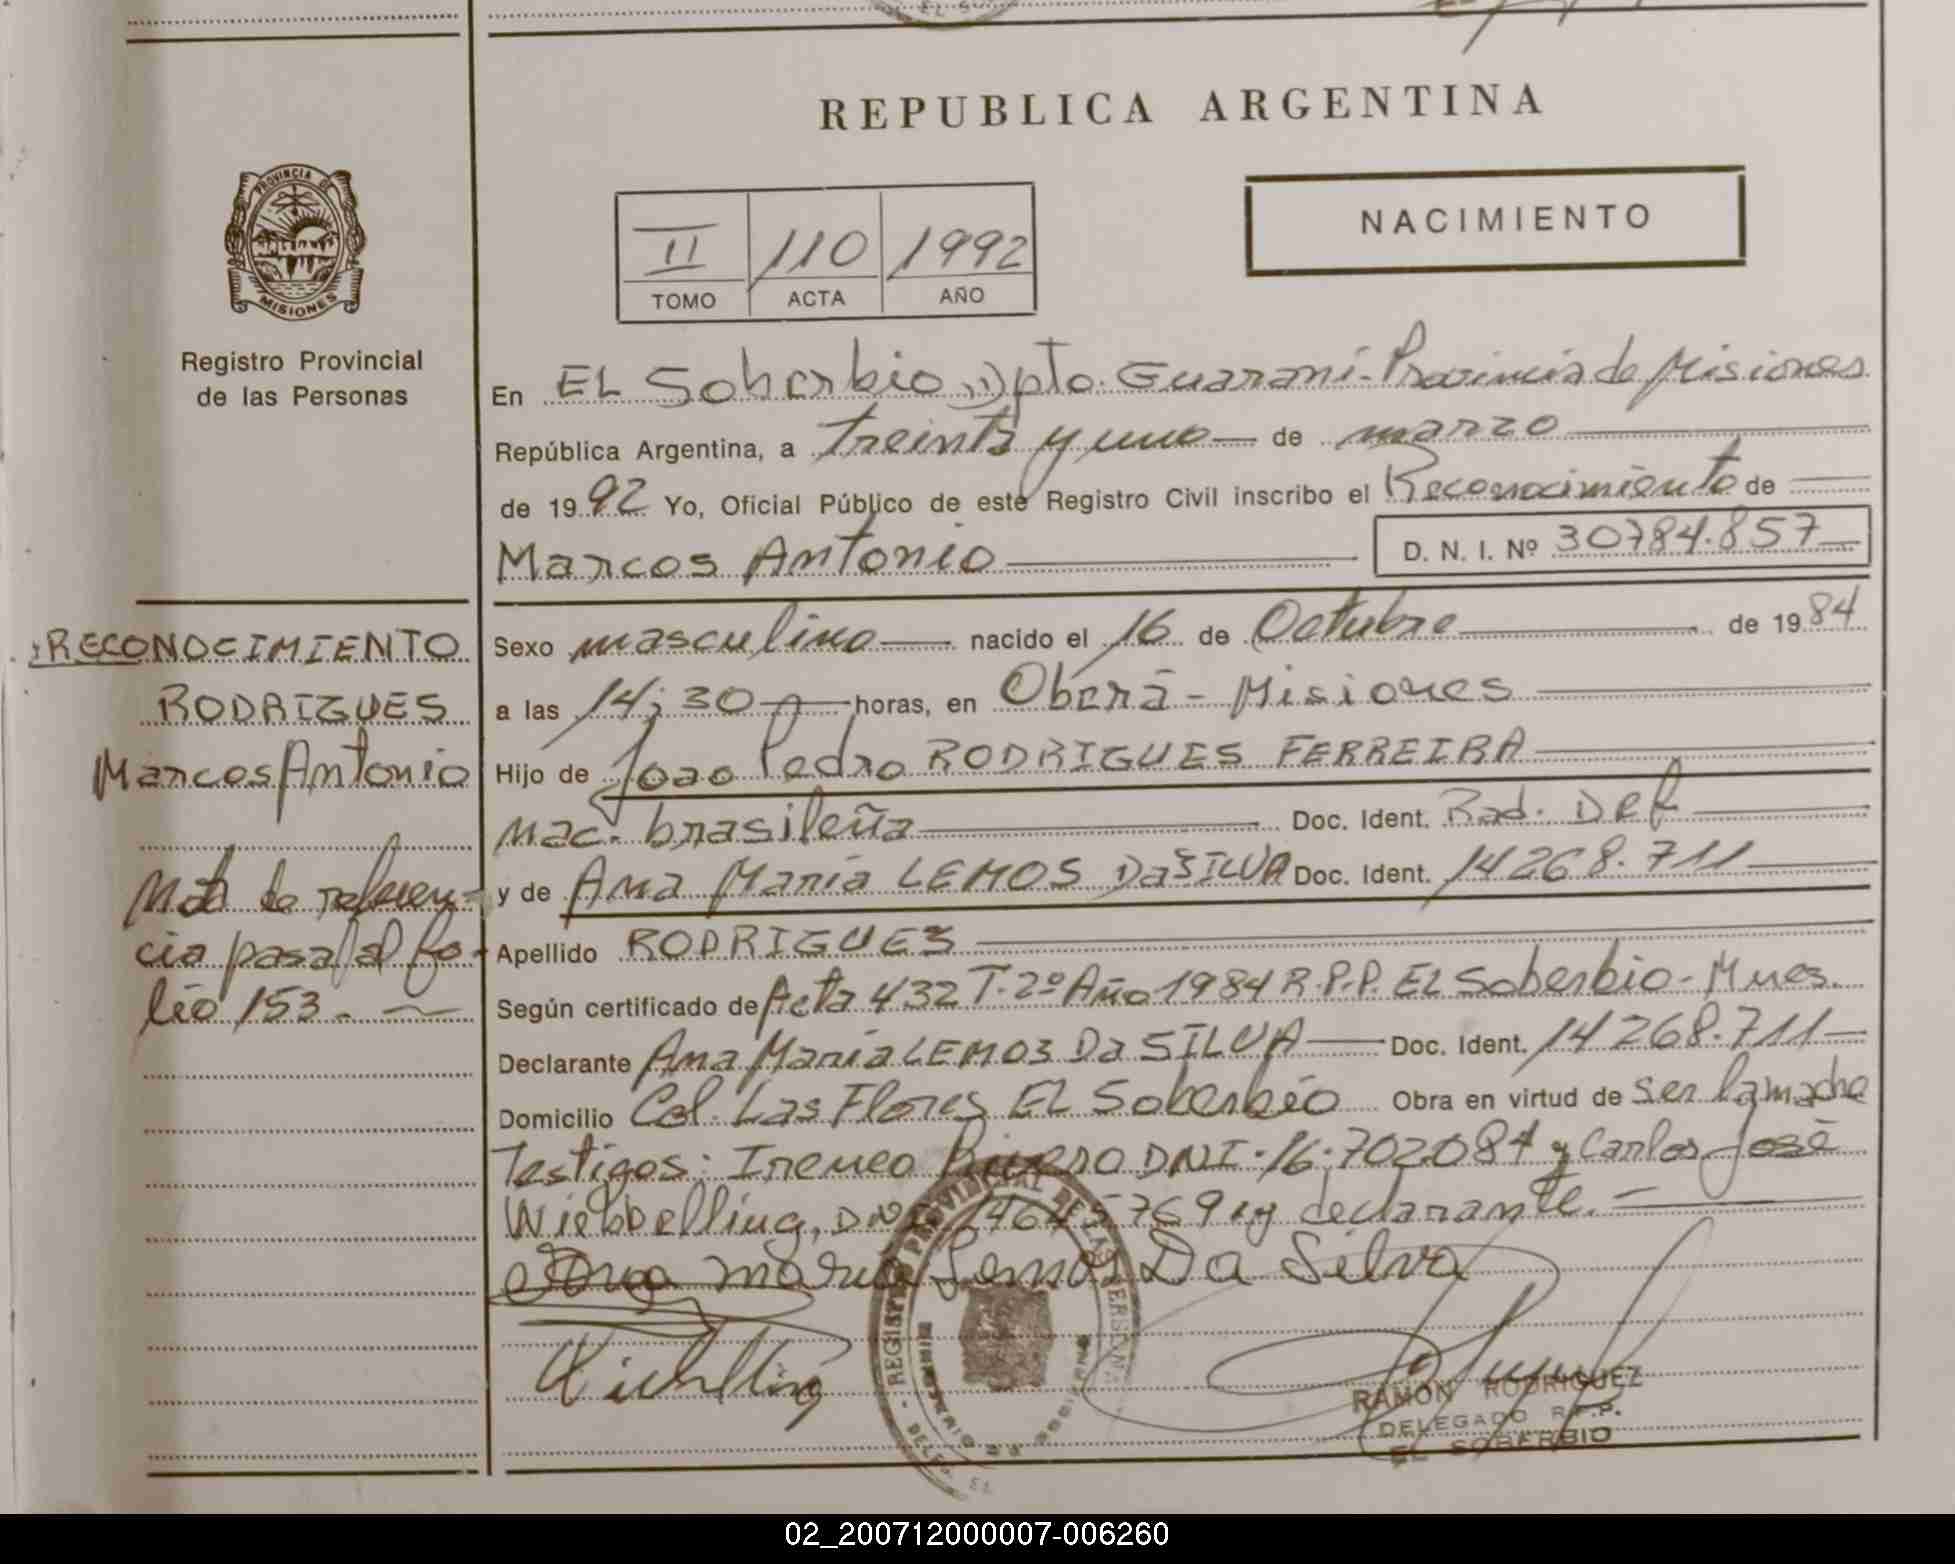 REPUBLICA ARGENTINA
NACIMIENTO
II 110 1992
TOMO ACTA AÑO
PROVINCIA DE
MISIONES
Registro Provincial
de las Personas
En EL Soberbio, Dpto. Guaraní - Provincia de Misiones
República Argentina, a treinta y uno de marzo
de 1992 Yo, Oficial Público de este Registro Civil inscribo el Reconocimiento de
Marcos Antonio D. N. I. Nº 30784.857
RECONOCIMIENTO
RODRIGUES
Marcos Antonio
Nota de referen-
cia pasa al fo-
lio 153.
Sexo masculino nacido el 16 de Octubre de 1984
a las 14; 30 horas, en Oberá - Misiones
Hijo de Joao Pedro RODRIGUES FERREIRA
Nac. brasileña Doc. Ident. Rad. Def
y de Ana María LEMOS Da SILVA Doc. Ident. 14268.711
Apellido RODRIGUES
Según certificado de Acta 432 T. 2º Año 1984 R.P.P. EL Soberbio - Mnes.
Declarante Ana María LEMOS Da SILVA Doc. Ident. 14268.711
Domicilio Col. Las Flores EL Soberbio Obra en virtud de ser la madre
Testigos: Ireneo DNI. 16.702.084 y Carlos José
Wiebbelling, DNI y declarante.
Ana maria Lemos Da Silva
RAMON RODRIGUEZ
DELEGADO R.P.P.
EL SOBERBIO
02_200712000007-006260